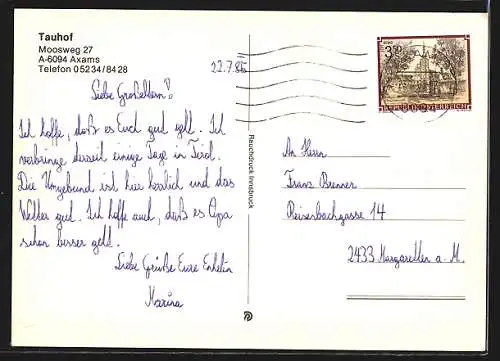 Tauhof
Moosweg 27
A-6094 Axams
Telefon 05234/8428
22.7.86
Liebe Großeltern!
Ich hoffe, daß es Euch gut geht. Ich
verbringe derzeit einige Tage in Tirol.
Die Umgebung ist hier herrlich und das
Wetter gut. Ich hoffe auch, daß es Opa
schon besser geht.
Liebe Grüße Eure Enkelin
Marina
Rauchdruck Innsbruck
3.50
REPUBLIK ÖSTERREICH
An Herrn
Franz Brenner
Reisenbachgasse 14
2433 Margarethen a. M.